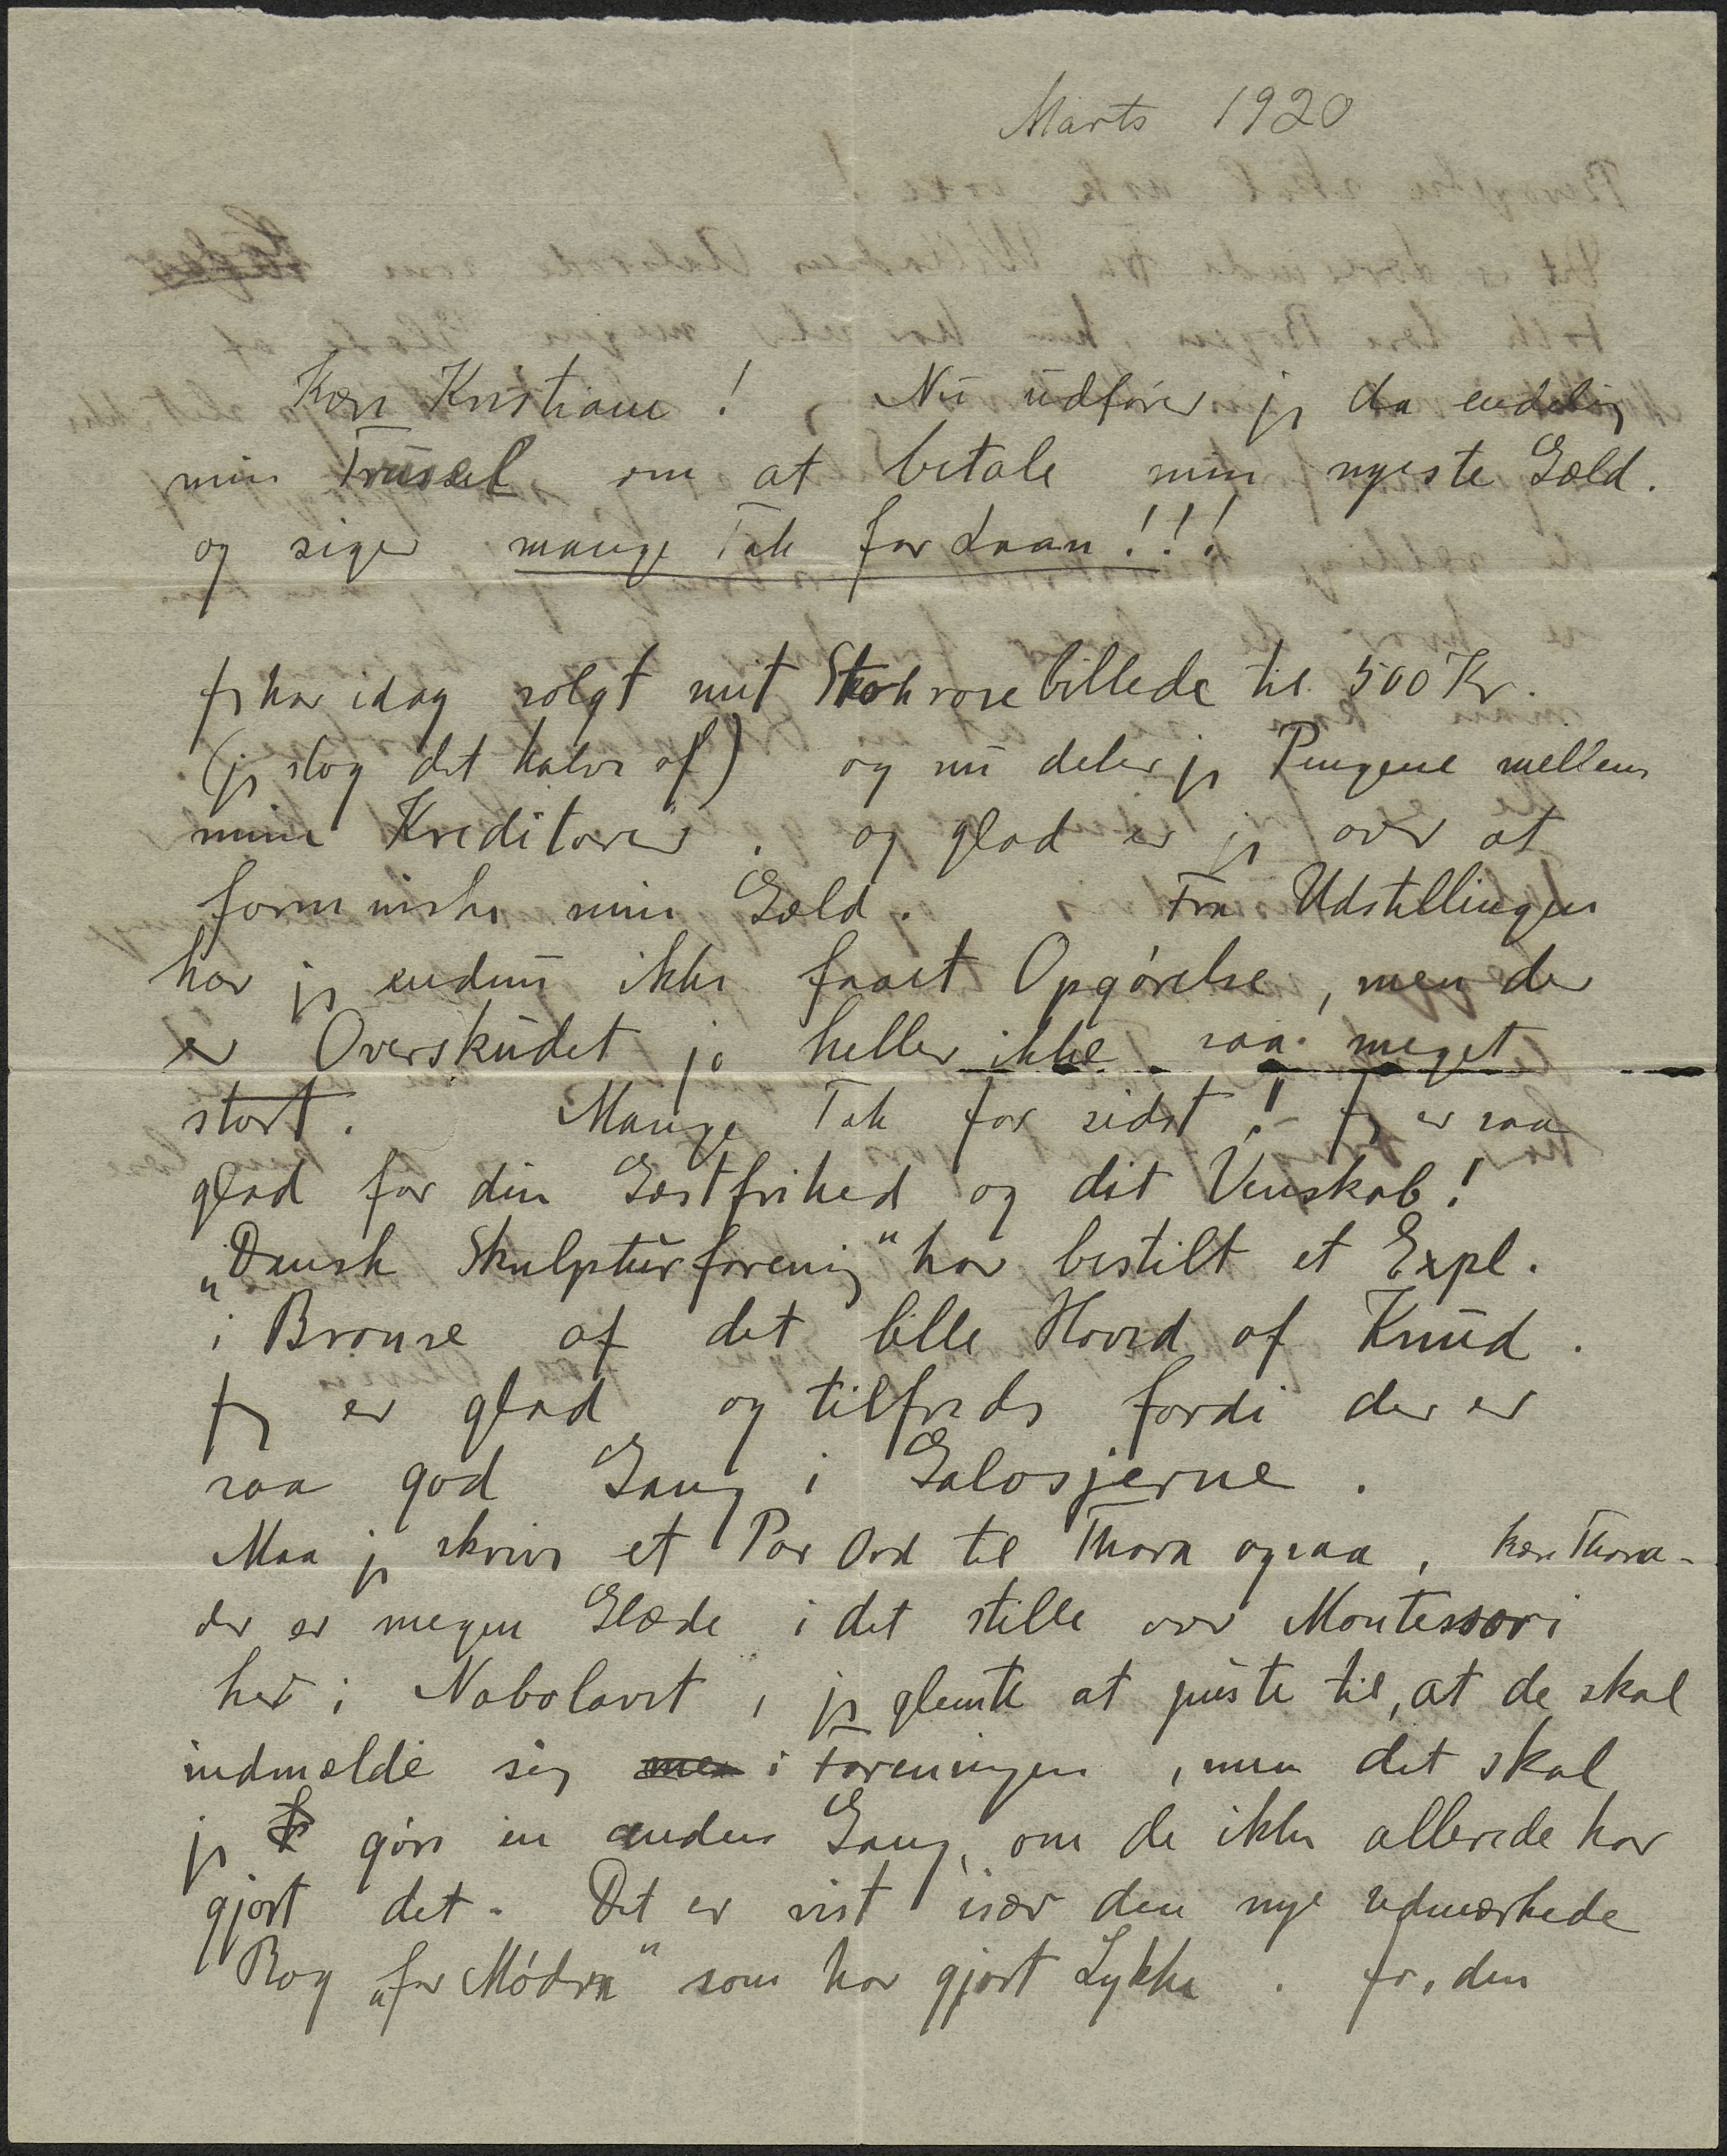 Marts 1920
Kære Kristiane! Nu udfører jeg da endelig
min Trusel om at betale min nyeste Gæld.
og siger mange Tak for Laan!!!
Jeg har idag solgt mit Stokrosebillede til 500 Kr.
(jeg slog det halve af) og nu deler jeg Pengene mellem
mine Kreditorer. og glad er jeg over at
formindske min Gæld. Fra Udstillingen
har jeg endnu ikke faaet Opgørelse, men der
er Overskudet jo heller ikke saa meget
stort. Mange Tak for sidst! Jeg er saa
glad for din Gæstfrihed og dit Venskab!
„Dansk Skulpturforening" har bestilt et Expl.
i Bronse af det lille Hoved af Knud.
Jeg er glad og tilfreds fordi der er
saa god Gang i Galosjerne.
Maa jeg skrive et Par Ord til Thora ogsaa, kære Thora -
der er megen Glæde i det stille over Montessori
her i Nabolavet, jeg glemte at puste til, at de skal
indmelde sig men i Foreningen, men det skal
jeg gøre en anden Gang, om de ikke allerede har
gjort det. Det er vist især den nye udmærkede
Bog „for Mødre" som har gjort Lykke. Ja, den